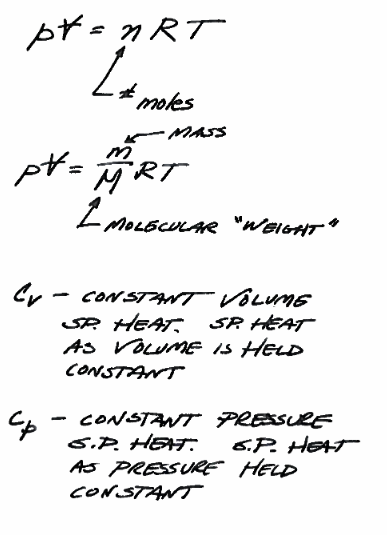 pV = n R T
# moles
MASS
pV = m/M RT
MOLECULAR "WEIGHT"
Cv - CONSTANT VOLUME
SP. HEAT. SP. HEAT
AS VOLUME IS HELD
CONSTANT
Cp - CONSTANT PRESSURE
S.P. HEAT. S.P. HEAT
AS PRESSURE HELD
CONSTANT